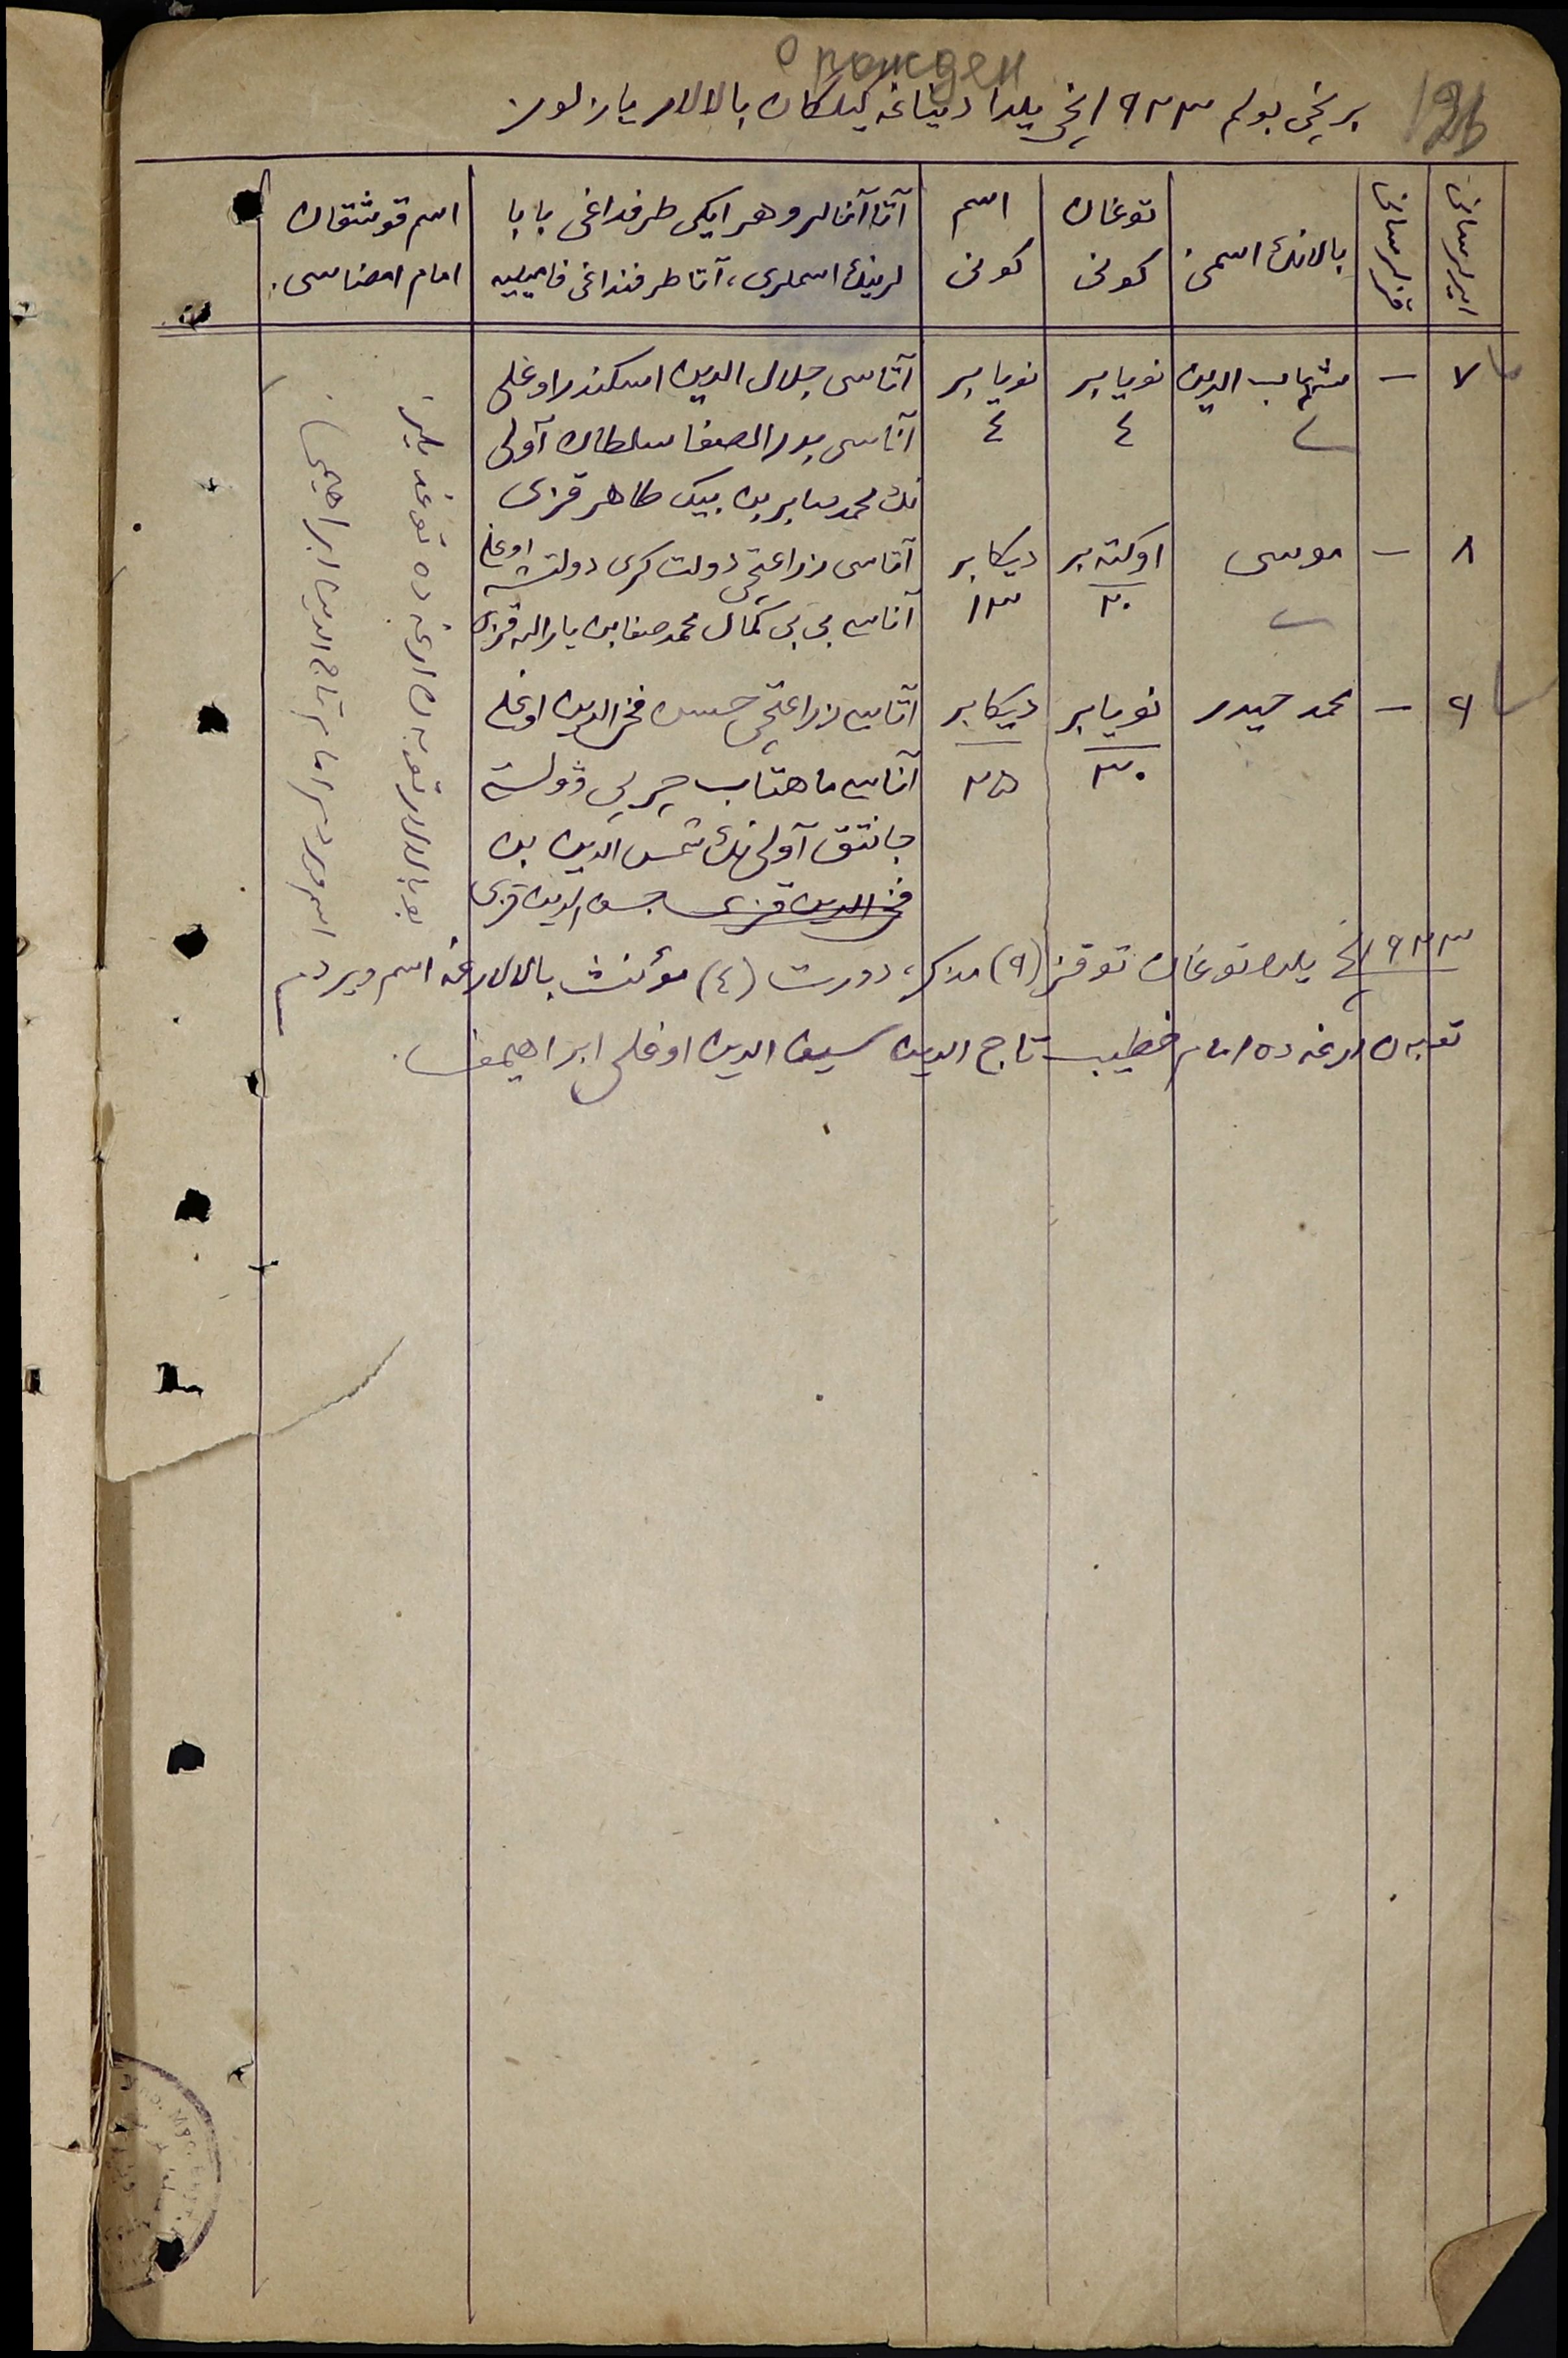 о рожден
برنچی بولم ١٩٢٣ نچی یلدا دنیاغه کیلکان بالالار یازلور.
ایرلر سانی
قزلر سانی
بالانڭ اسمی
توغان کونی
اسم کونی
آتا آنالر و هر ایکی طرفداغی بابا
لرینڭ اسملری، آتا طرفنداغی فامیلیه
اسم قوشقان
امام امضاسی.
٧ — شهاب الدین نویابر ٤ نویابر ٤
آتاسی جلال الدین اسکندر اوغلی
آناسی بدر الصفا سلطان آولی
نڭ محمد صابر بن بیک طاهر قزی
٨ — موسی اوکتهبر ٢٠ دیکابر ١٣
آتاسی زراعتچی دولت کری دولتشه اوغلی
آناسی بی بی کمال محمد صفا بن یار الله قزی
٩ — محمد حیدر نویابر ٣٠ دیکابر ٢٥
آتاسی زراعتچی حسن فخر الدین اوغلی
آناسی ماهتاب
جانتق آولی نڭ شمس الدین بن
فخر الدین قزی
امام تاج الدین ابراهیمی
١٩٢٣ نچی یلده توغان توقز (٩) مذکر، دورت (٤) مؤنث بالالارغه اسم ویردم
امام خطیب تاج الدین سیف الدین اوغلی ابراهیمف.